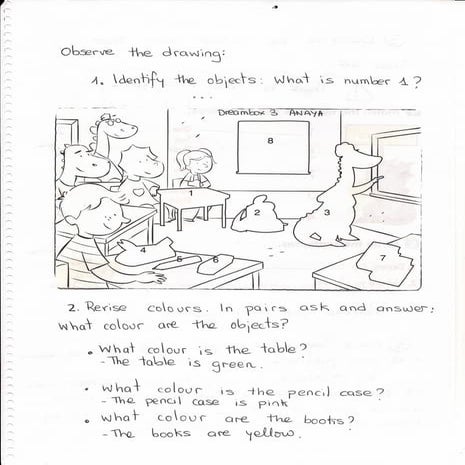 Observe the drawing:
1. Identify the objects: What is number 1?
...
Dreambox 3 ANAYA
8
1
2
3
4
5
6
7
2. Revise colours. In pairs ask and answer:
What colour are the objects?
• What colour is the table?
- The table is green.
• What colour is the pencil case?
- The pencil case is pink
• What colour are the books?
- The books are yellow.